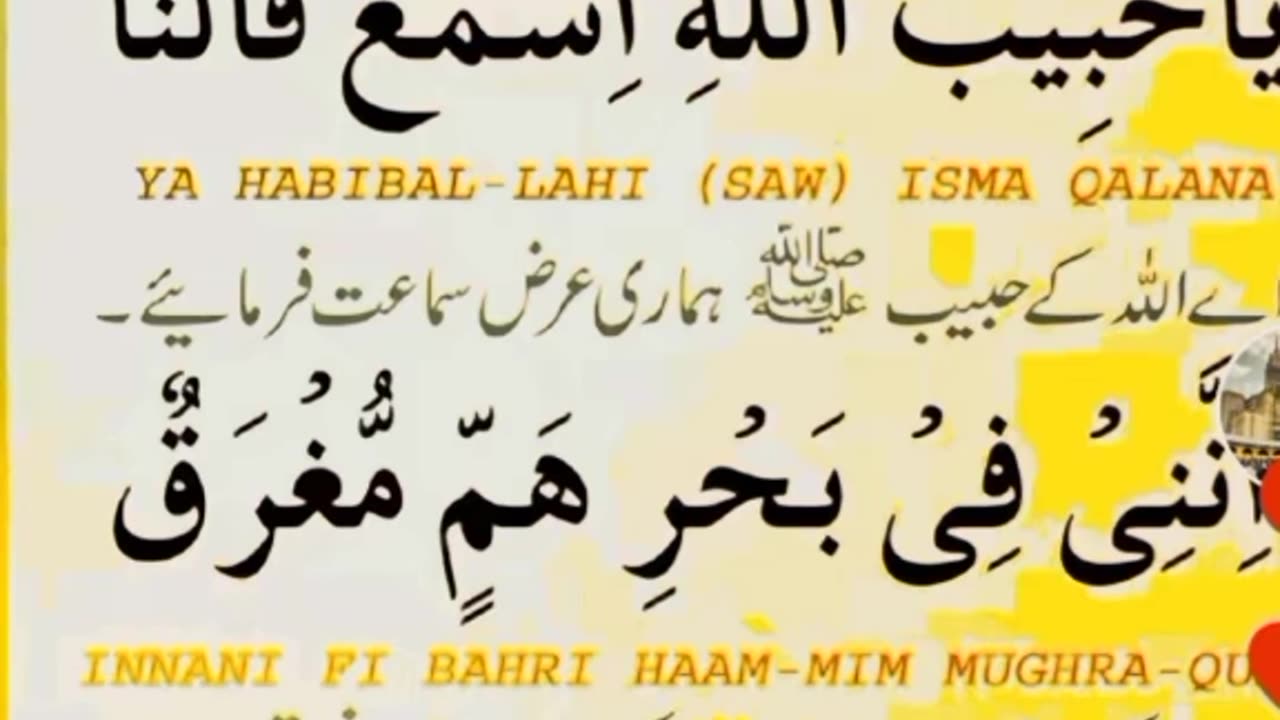 يَا حَبِيبَ اللهِ اِسْمَعْ قَالَنَا
YA HABIBAL-LAHI (SAW) ISMA QALANA
اے اللہ کے حبیب ﷺ ہماری عرض سماعت فرمایئے۔
اِنَّنِیْ فِیْ بَحْرِ هَمٍّ مُّغْرَقٌ
INNANI FI BAHRI HAAM-MIM MUGHRA-QU